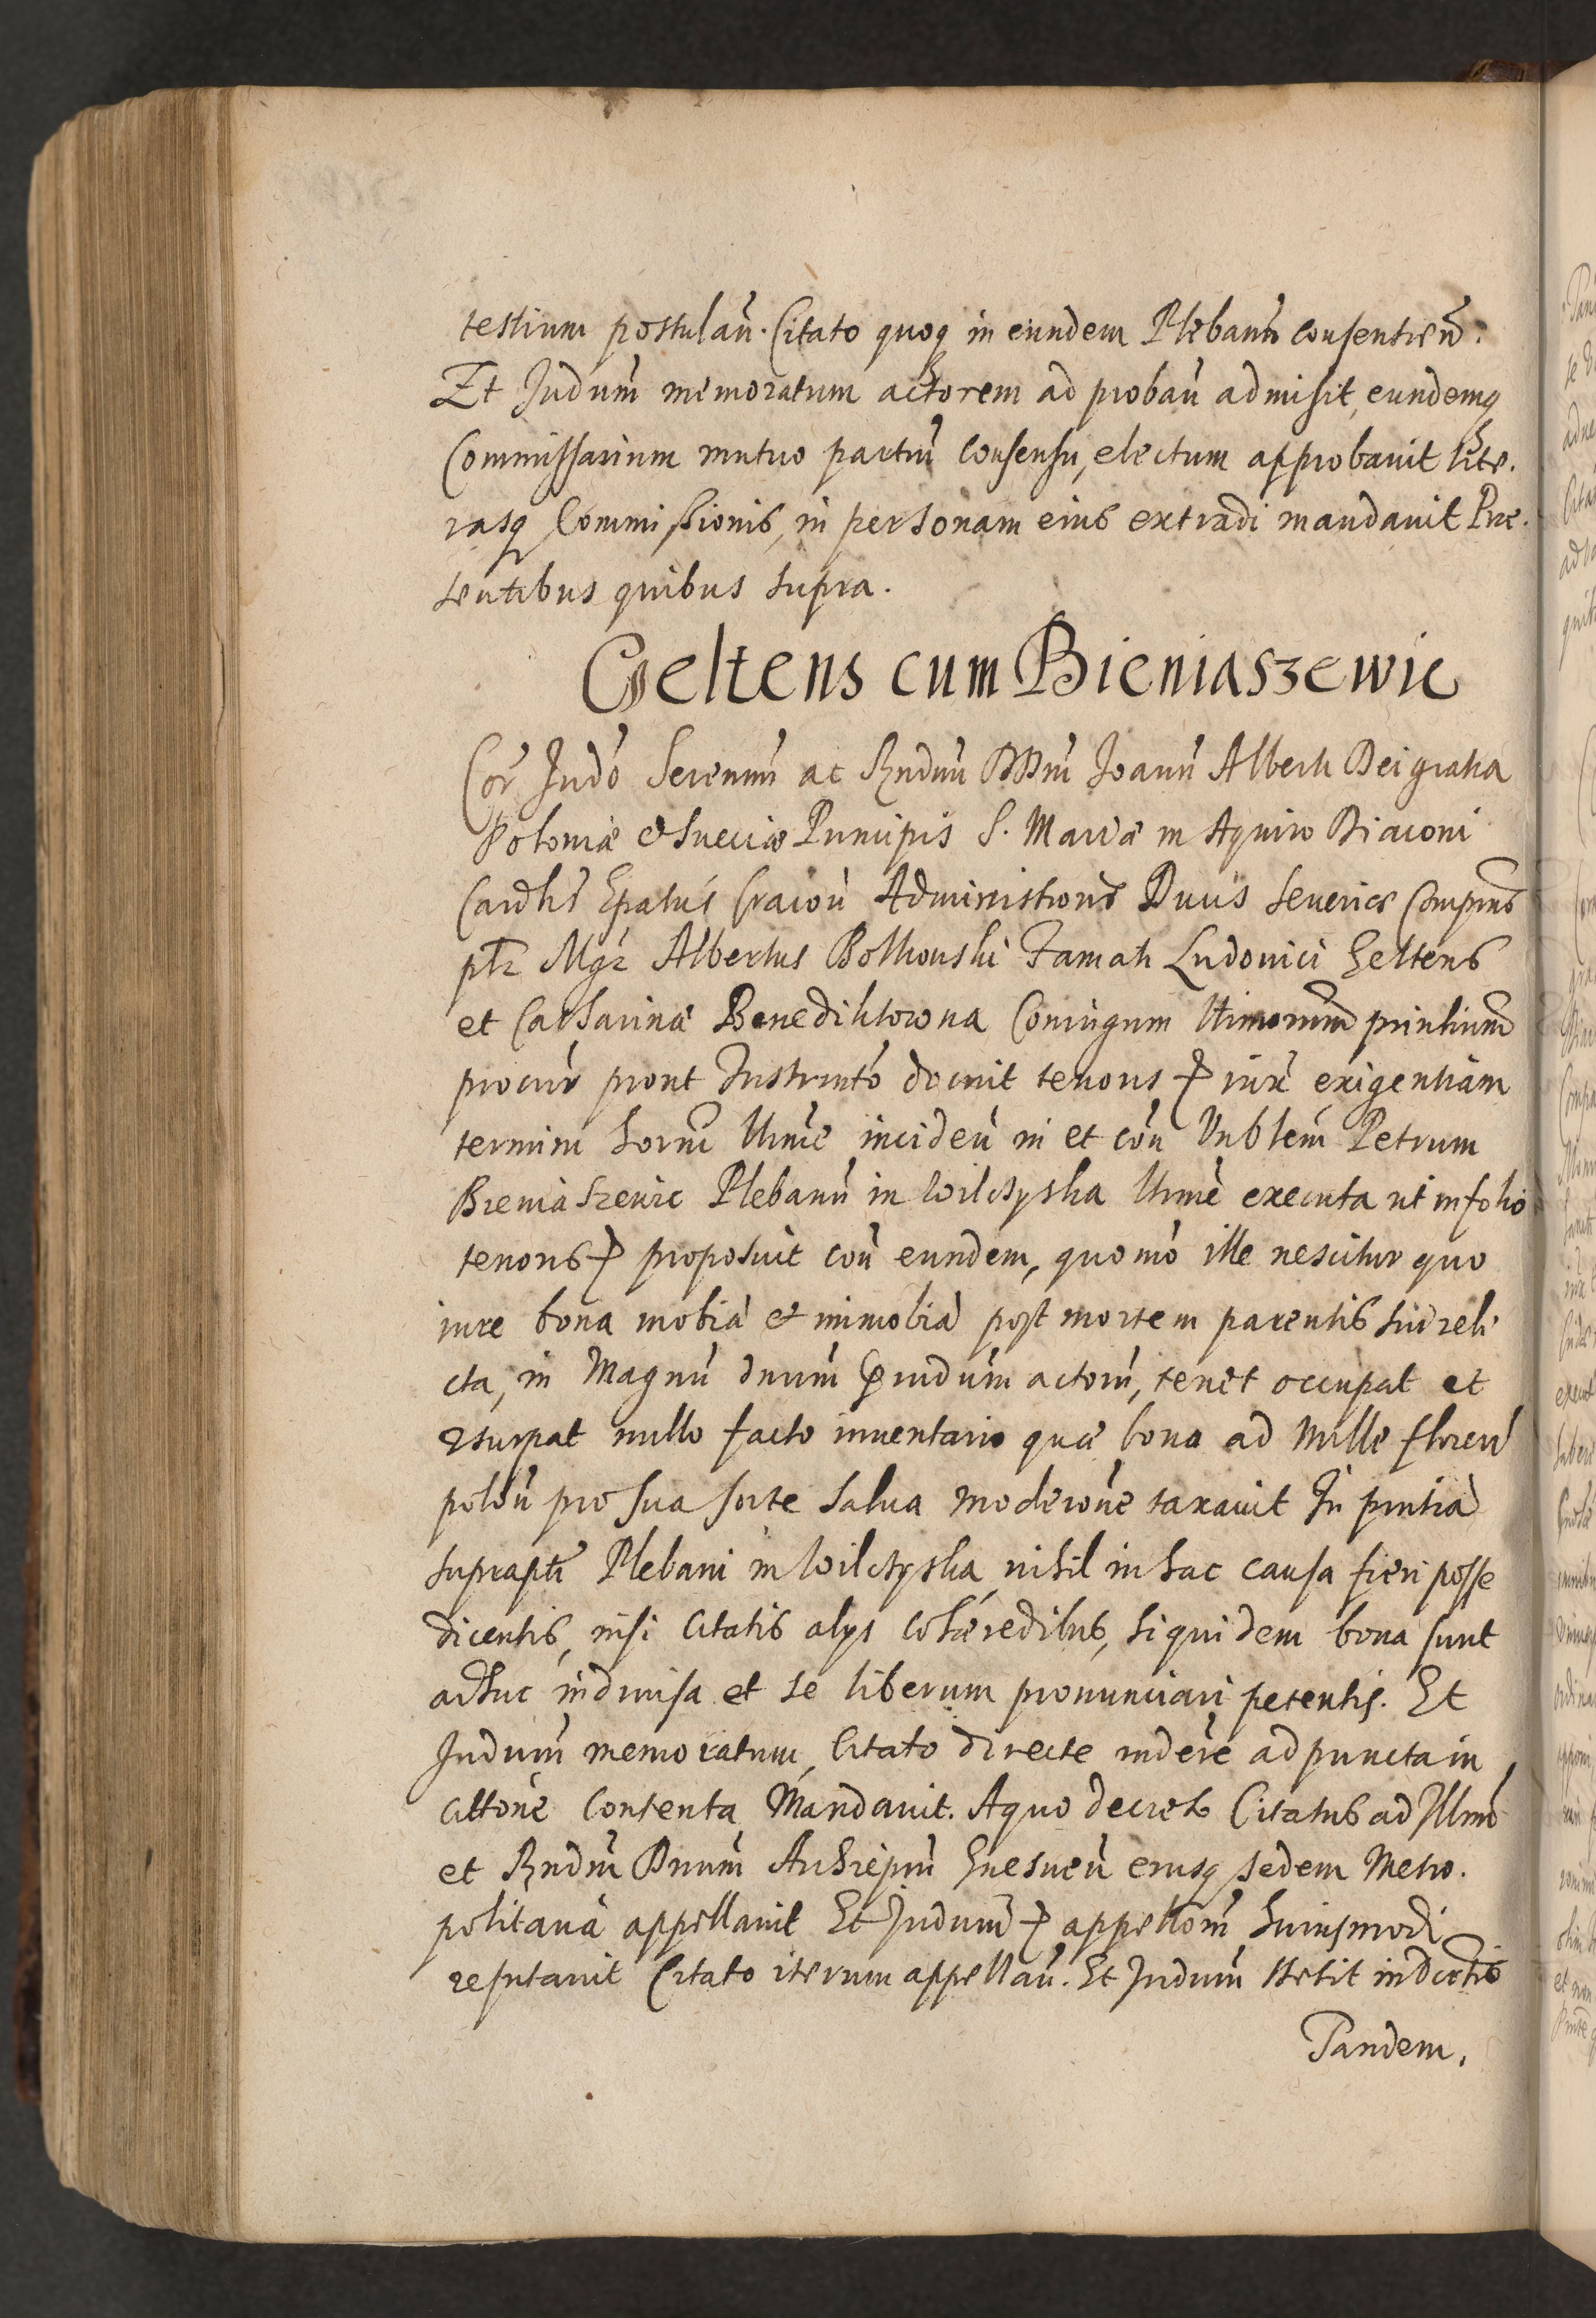 testium postulan̄. Citato quoq in eundem Plebanū consentien̄.
Et Judum̄ memoratum actorem ad proban̄ admisit, eundemq
Commissarium mutuo partiū consensu, electum approbavit lite.
rasq Commissionis, in personam eius extradi mandavit Præ.
sentibus quibus supra.
Geltens cum Bieniaszewic
Cor̄ Judō Serenmī ac Rndmī DDnī Joann̄ Alberti Dei gratia
Poloniæ et Sueciæ Principis S. Mariæ in Aquiro Diaconi
Cardlis̄ Epatus̄ Cracov̄ Administroris̄ Ducis Severiæ Comprns̄
ptr̄ Mgr̄ Albertus Bolkowski Famati Ludovici Geltens
et Catharinæ Benediktowna Coniugum principium
procur̄ prout Instrumtō docuit tenoris iurē exigentiam
termini horum̄ inciden̄ in et con̄ Vnblem̄ Petrum
Bieniaszewic Plebanū in Wilczyska executa ut in folio
tenoris proposuit con̄ eundem, quomō ille nescitur quo
iure bona mobiā et immobiā post mortem parentis sui reli
cta, in Magnū dnum̄ actorum̄, tenet occupat et
vsurpat nullo facto inventario quæ bona ad Mille floren̄
polon̄ pro sua sorte salva moderōne taxavit In pntiā
suprapti̅ Plebani in Wilczyska, nihil in hac causa fieri posse
dicentis, nisi citatis alys cohæredibus, siquidem bona sunt
adhuc indivisa et se liberum pronunciari petentis. Et
Judum̄ memoratum, Citato directe rndere̅ ad puncta in
cittōne contenta Mandavit. A quo decreto Citatus ad Illmū
et Rndm̄ Dnum̄ Archiepm̄ Gnesnen̄ eiusq sedem Metro.
politanā appellavit Et Judum̄ appellōni huiusmodi
refutavit Citato iterum appellan̄. Et Judum̄ stetit in
Tandem.